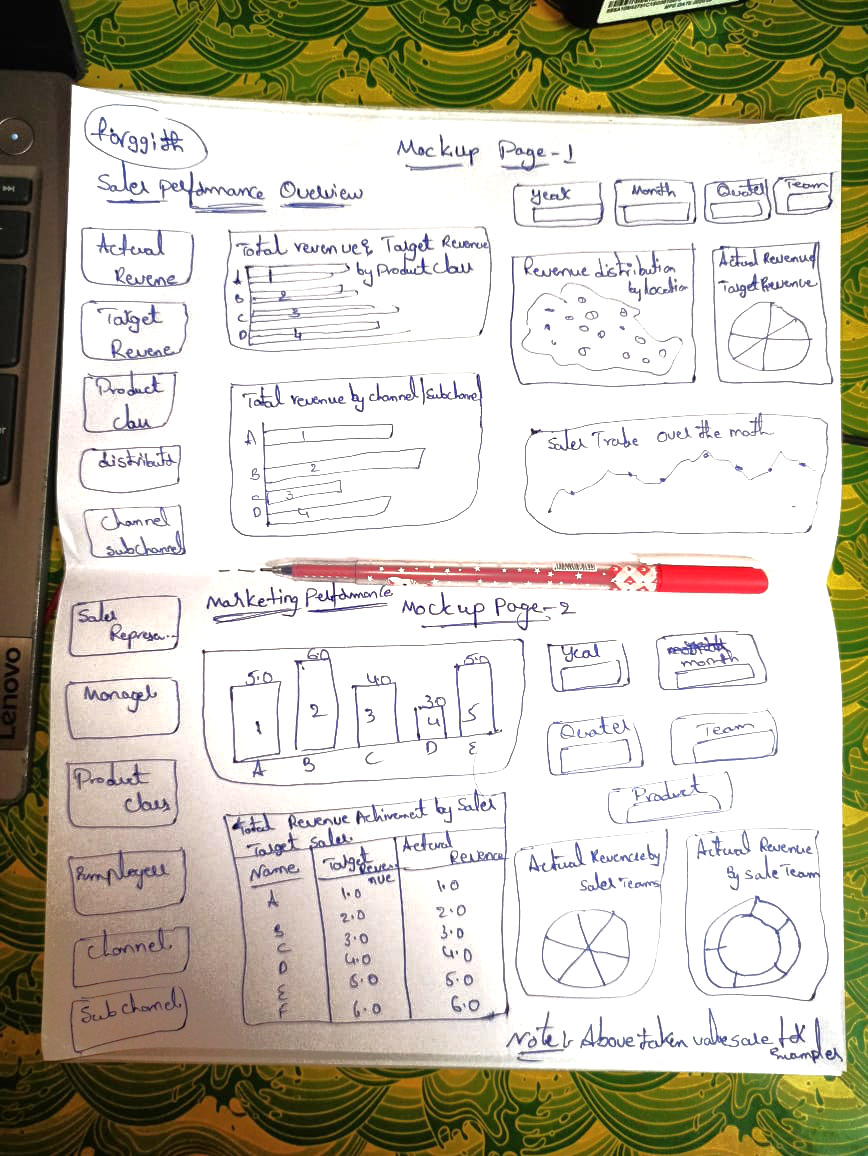 Mockup Page-1
Sales performance Overview
Year
Month
Quater
Team
Actual
Revene
Target
Revene
Product
Class
distributor
Channel
subchannel
Total revenue & Target Revenue
by Product Class
A 1
B 2
C 3
D 4
Revenue distribution
by location
Actual Revenue/
Target Revenue
Total revenue by channel/subchannel
A 1
B 2
C 3
D 4
Sales Over the moth
Marketing Performance
Mockup Page-2
Sales
Represa...
Manager
Product
Class
Employee
Channel
Subchannel
5.0 6.0 40 30 5.0
1 2 3 4 5
A B C D E
Year
month
Quater
Team
Product
Total Revenue Achivement by Sales
Target Sales.
Name Target Revenue Actual Revenue
A 1.0 1.0
B 2.0 2.0
C 3.0 3.0
D 4.0 4.0
E 5.0 5.0
F 6.0 6.0
Actual Revenue by
Sales Teams
Actual Revenue
By sale Team
Note:- Above taken values are for
Examples
Lenovo